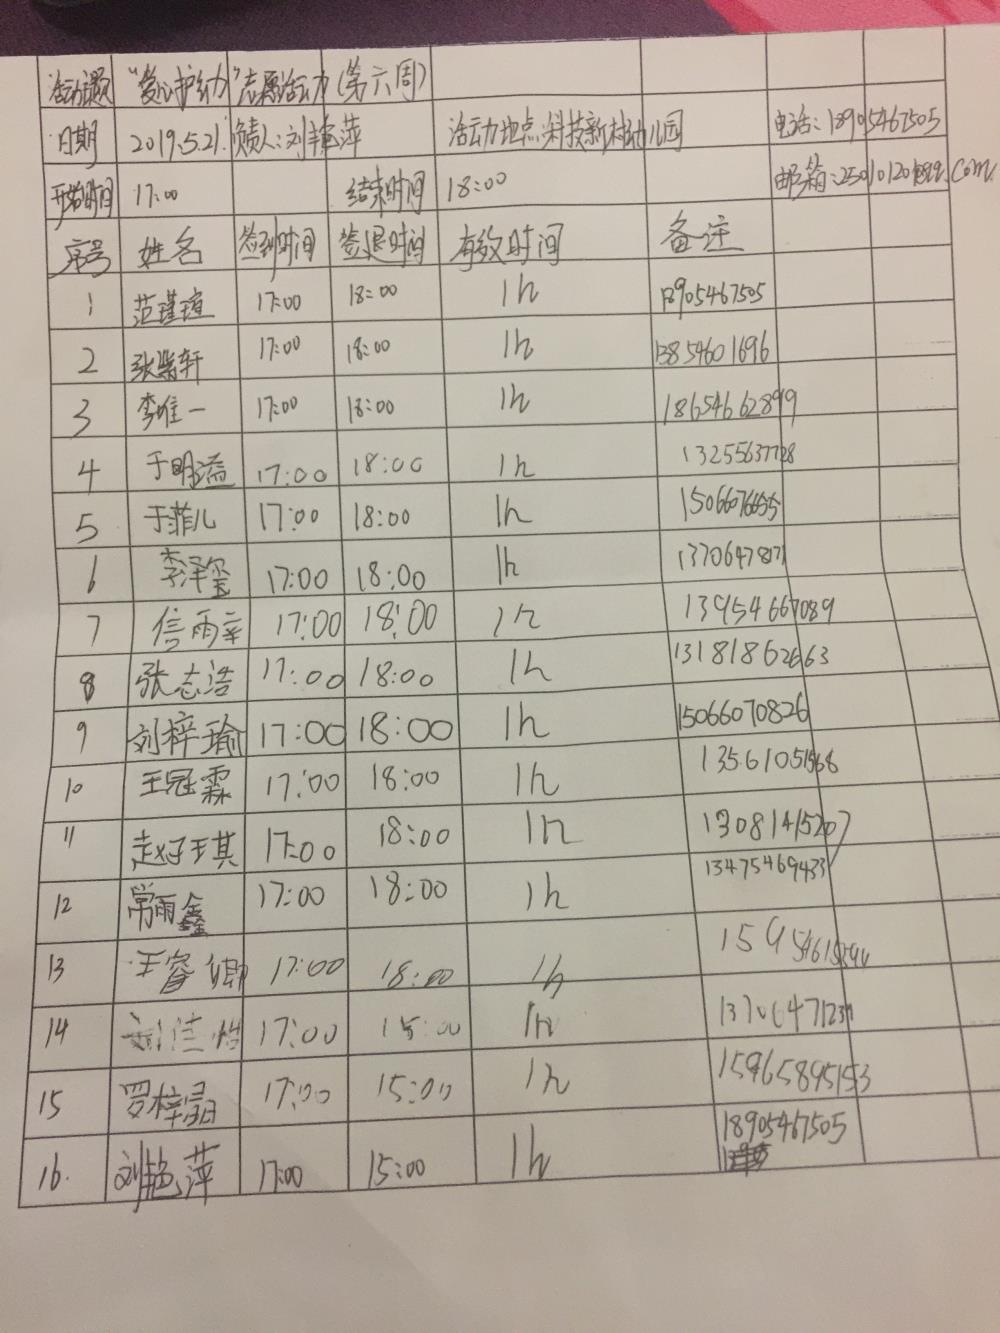 活动主题 "爱心护幼"志愿活动(第六周)
日期 2019.5.21 负责人:刘艳萍 活动地点:科技新村幼儿园 电话:18905467505
开始时间 17:00 结束时间 18:00 邮箱: .com
序号 姓名 签到时间 签退时间 有效时间 备注
1 范瑾瑄 17:00 18:00 1h 18905467505
2 张紫轩 17:00 18:00 1h 13854601696
3 李唯一 17:00 18:00 1h 18654662899
4 于明溢 17:00 18:00 1h 13255637728
5 于菲儿 17:00 18:00 1h
6 李泽玺 17:00 18:00 1h
7 信雨辛 17:00 18:00 1h 13954667089
8 张志浩 17:00 18:00 1h 13181862663
9 刘梓瑜 17:00 18:00 1h 15066070826
10 王冠霖 17:00 18:00 1h 13561051568
11 赵子琪 17:00 18:00 1h 13081415207
12 常雨鑫 17:00 18:00 1h 13475469433
13 王睿卿 17:00 18:00 1h
14 17:00 15:00 1h
15 罗梓晶 17:00 15:00 1h 15965895153
16. 刘艳萍 17:00 15:00 1h 18905467505